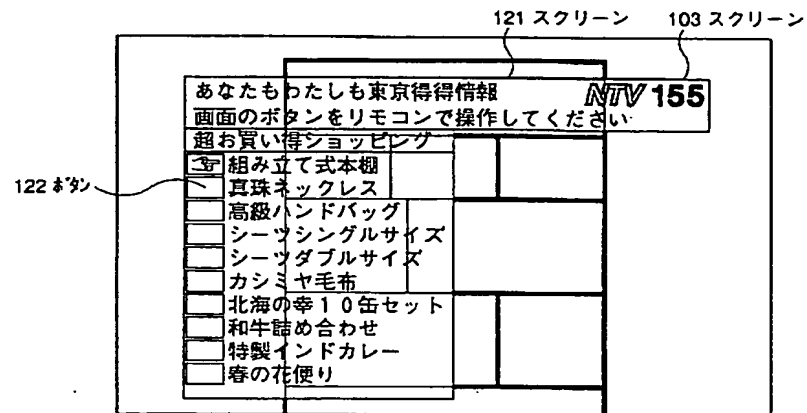 121 スクリーン 103 スクリーン
あなたもわたしも東京得得情報 NTV 155
画面のボタンをリモコンで操作してください
超お買い得ショッピング
組み立て式本棚
122 ボタン
真珠ネックレス
高級ハンドバッグ
シーツシングルサイズ
シーツダブルサイズ
カシミヤ毛布
北海の幸10缶セット
和牛詰め合わせ
特製インドカレー
春の花便り